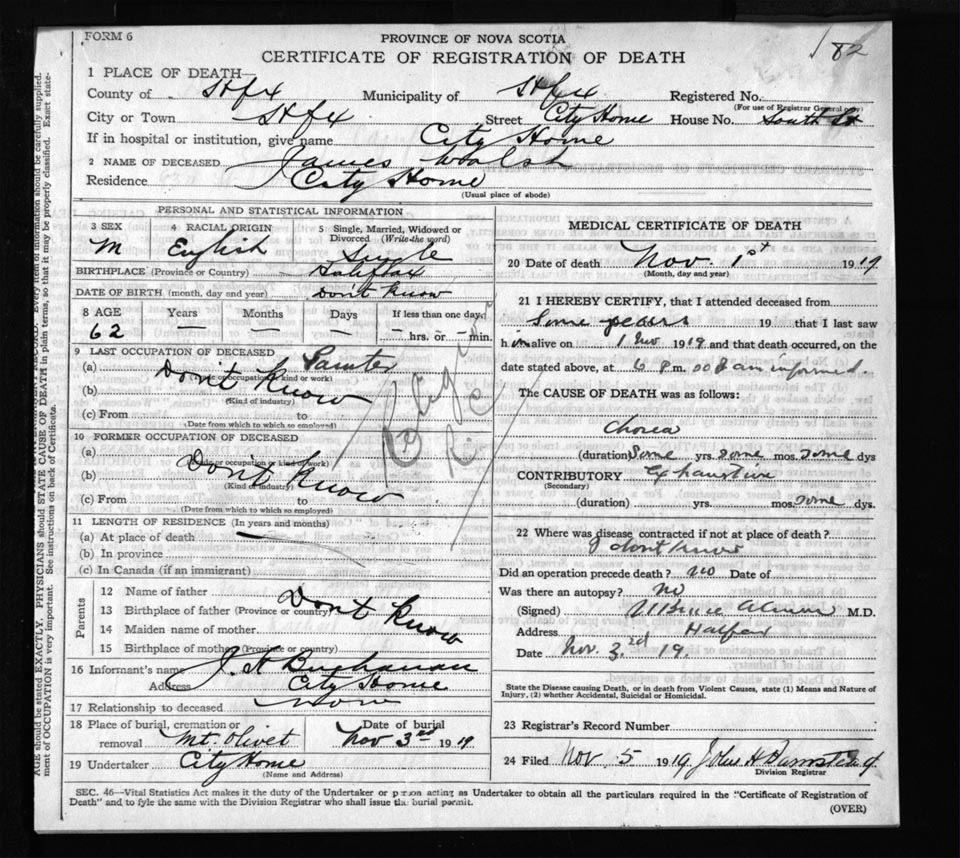 FORM 6
PROVINCE OF NOVA SCOTIA
CERTIFICATE OF REGISTRATION OF DEATH
182
1 PLACE OF DEATH—
County of Hfx Municipality of Hfx Registered No.
(For use of Registrar General only)
City or Town Hfx Street City Home House No. South St
If in hospital or institution, give name City Home
2 NAME OF DECEASED James Walsh
Residence City Home
(Usual place of abode)
PERSONAL AND STATISTICAL INFORMATION
3 SEX 4 RACIAL ORIGIN 5 Single, Married, Widowed or Divorced (Write the word)
M English Single
BIRTHPLACE (Province or Country) Halifax
DATE OF BIRTH (month, day and year) Don't Know
8 AGE Years Months Days If less than one day,
62 — — — hrs. or — min.
9 LAST OCCUPATION OF DECEASED
(a) Painter
(Trade or occupation or kind or work)
(b) Don't Know
(Kind of industry)
(c) From to
(Date from which to which so employed)
10 FORMER OCCUPATION OF DECEASED
(a)
(Trade or occupation or kind of work)
(b) Don't Know
(Kind of industry)
(c) From to
(Date from which to which so employed)
R.C.
11 LENGTH OF RESIDENCE (In years and months)
(a) At place of death
(b) In province
(c) In Canada (if an immigrant)
Parents
12 Name of father
13 Birthplace of father (Province or country)
Don't Know
14 Maiden name of mother
15 Birthplace of mother (Province or country)
16 Informant's name J. A Buchanan
Address City Home
17 Relationship to deceased None
18 Place of burial, cremation or removal Mt. Olivet
Date of burial Nov 3rd 1919
19 Undertaker City Home
(Name and Address)
MEDICAL CERTIFICATE OF DEATH
20 Date of death Nov. 1st 1919
(Month, day and year)
21 I HEREBY CERTIFY, that I attended deceased from
Some years 19 that I last saw
him alive on 1 Nov 1919 and that death occurred, on
date stated above, at 6 P.m. 00 I am informed.
The CAUSE OF DEATH was as follows:
Chorea
(duration) Some yrs. some mos. some dys
CONTRIBUTORY Exhaustion
(Secondary)
(duration) yrs. mos. some dys.
22 Where was disease contracted if not at place of death?
I dont know
Did an operation precede death? no Date of
Was there an autopsy? no
(Signed) M.D.
Address Halifax
Date Nov. 3rd 19.
State the Disease causing Death, or in death from Violent Causes, state (1) Means and Nature of
Injury, (2) whether Accidental, Suicidal or Homicidal.
23 Registrar's Record Number
24 Filed Nov. 5 1919 John H Barnstead
Division Registrar
SEC. 46—Vital Statistics Act makes it the duty of the Undertaker or person acting as Undertaker to obtain all the particulars required in the "Certificate of Registration of
Death" and to fyle the same with the Division Registrar who shall issue the burial permit.
(OVER)
AGE should be stated EXACTLY. PHYSICIANS should STATE CAUSE OF DEATH in plain terms, so that it may be properly classified. Exact state-
ment of OCCUPATION is very important. See instructions on back of Certificate.
Every item of information should be carefully supplied.